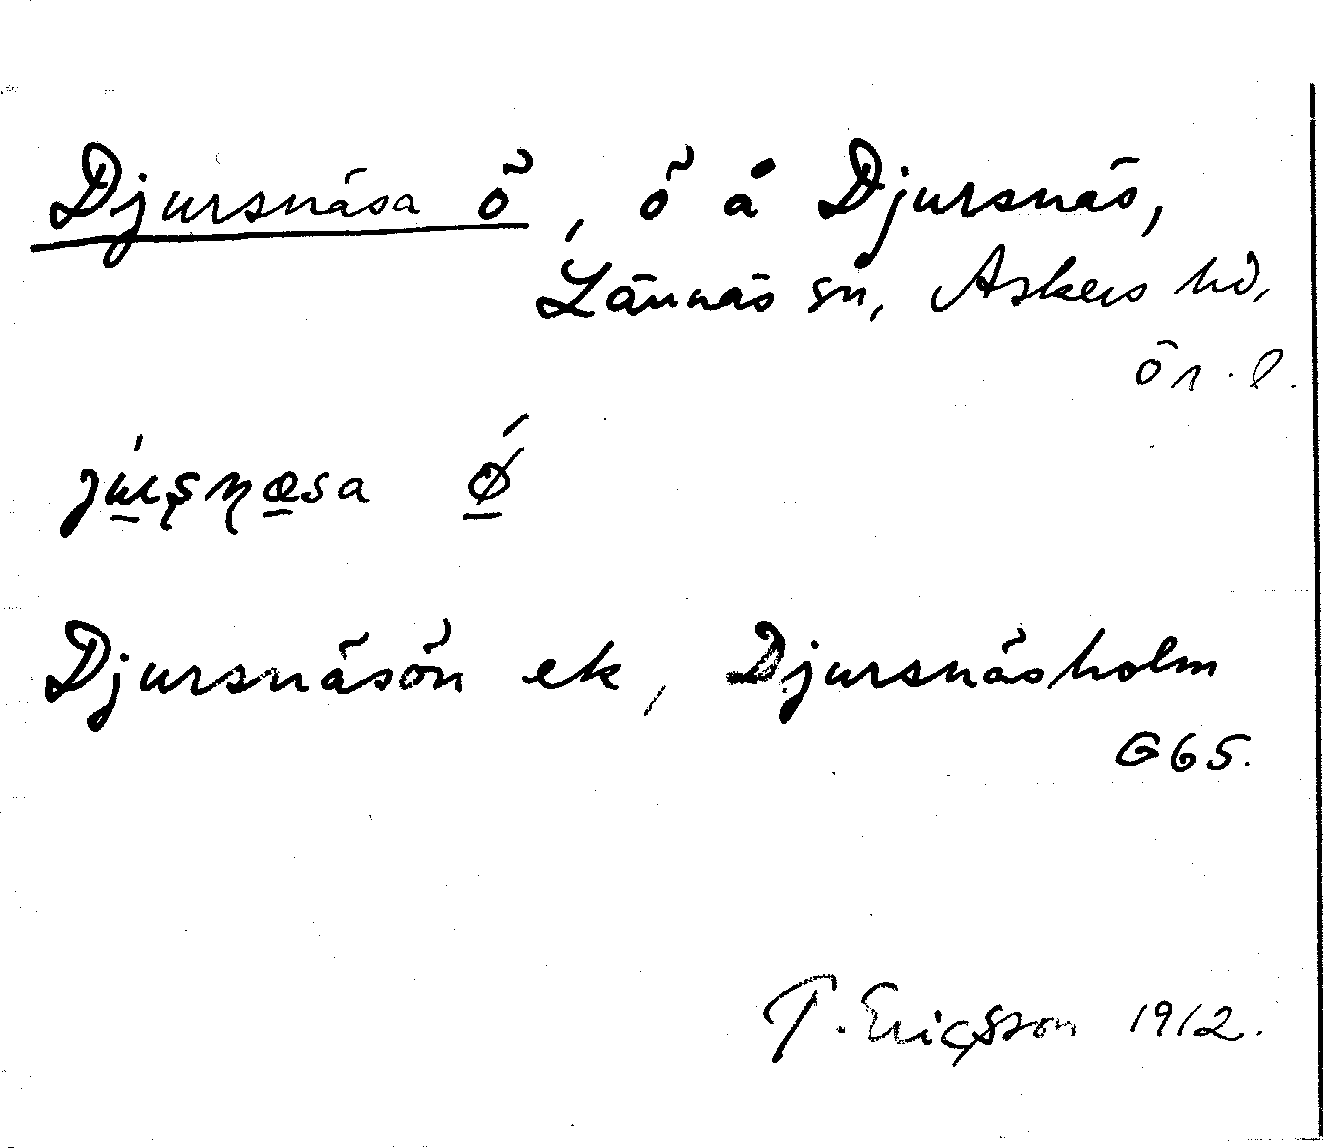 Djursnäsa ö, ö å Djursnäs,
Lännäs sn, Askers hd,
Ör. l.
Djursnäsön ek, Djursnäsholm
G65.
T. Ericsson 1912.